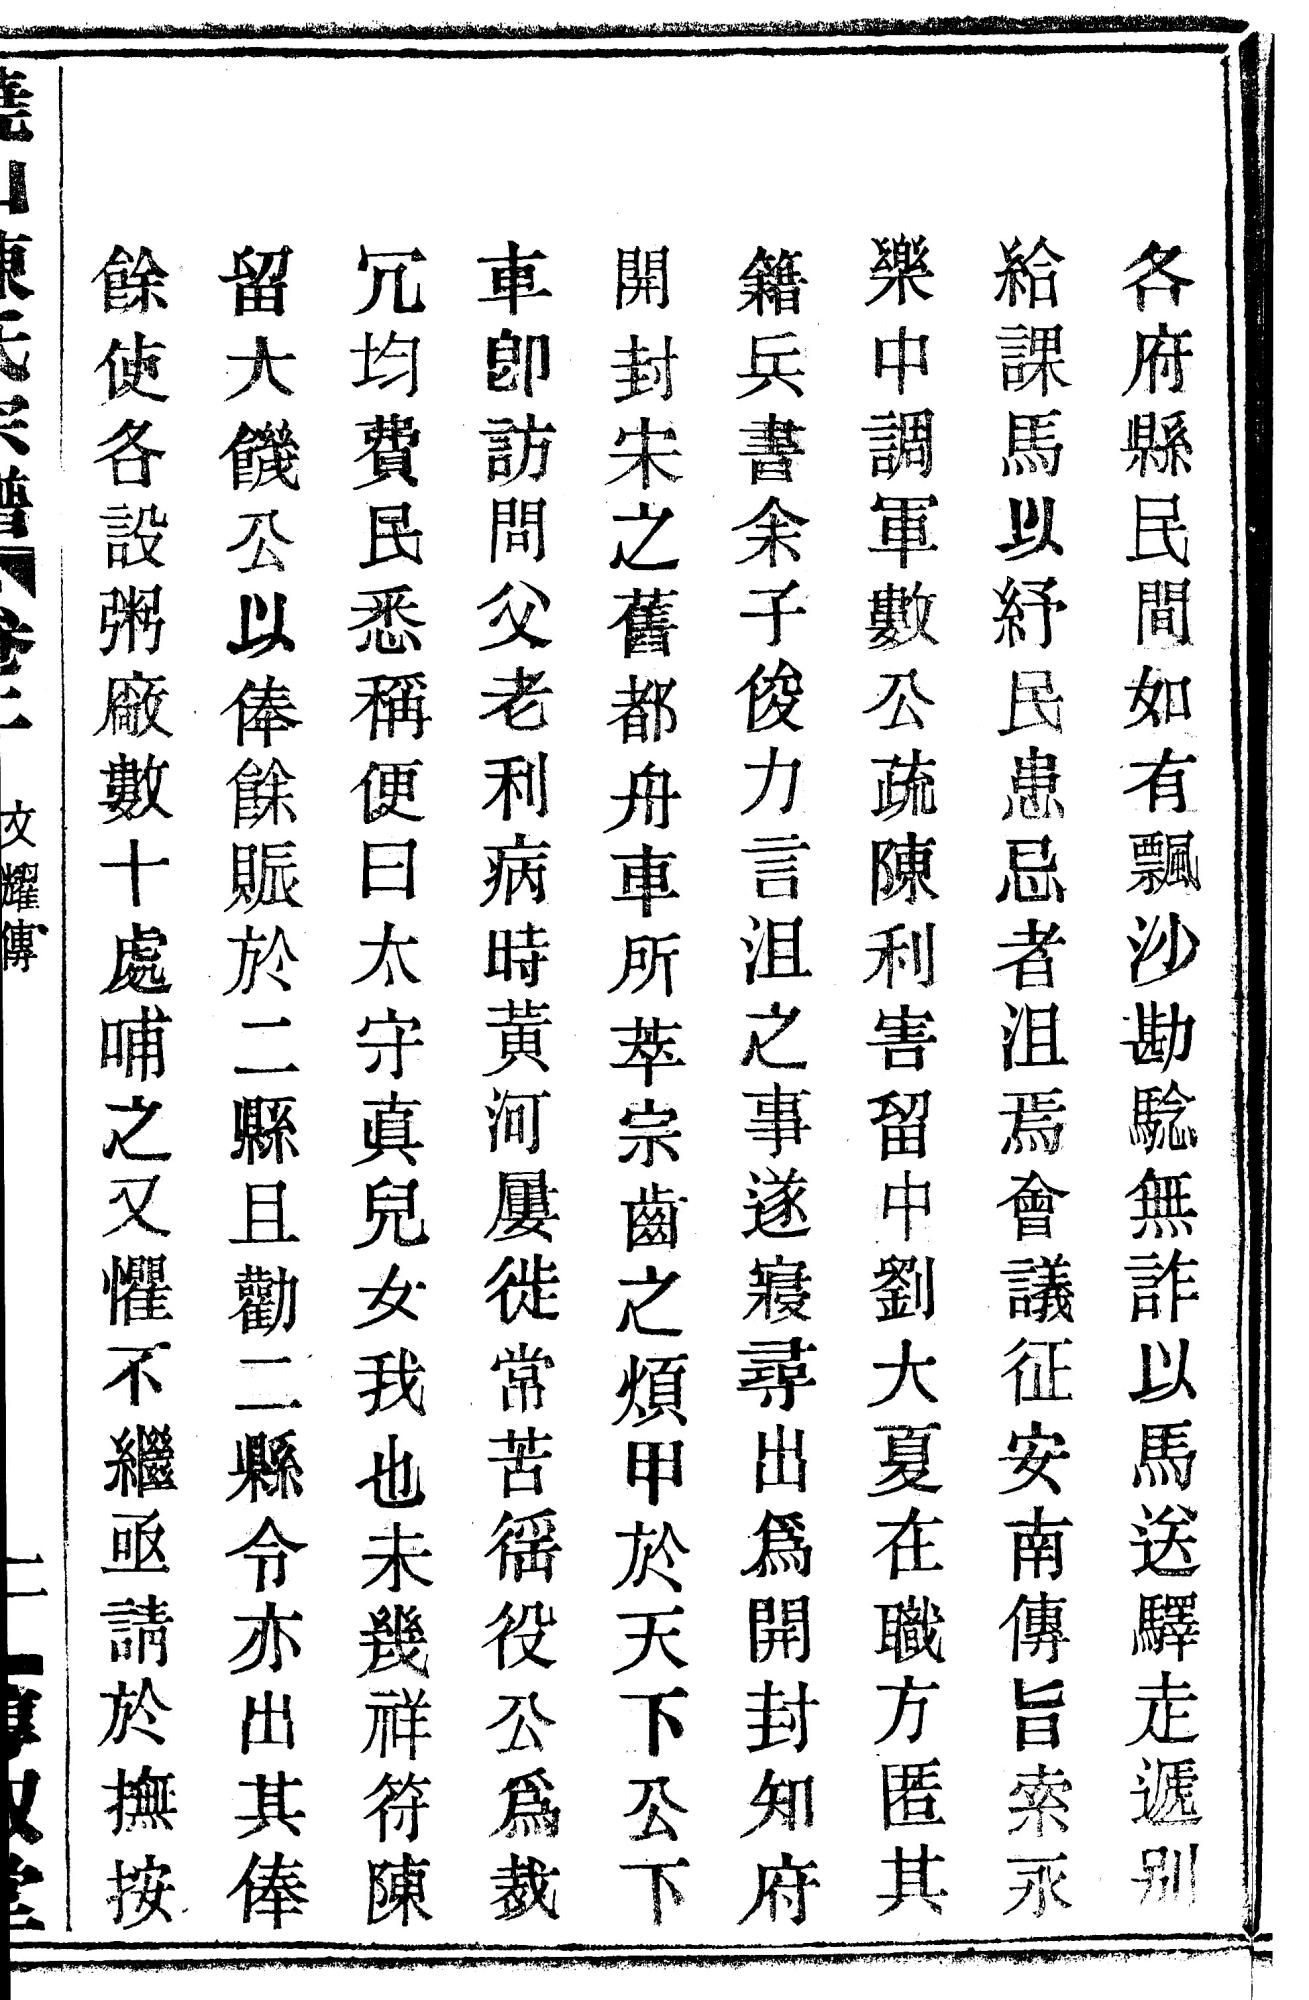 各府縣民間如有飄沙勘騐無詐以馬送驛走遞别
給課馬以紓民患忌者沮焉會議征安南傳旨索永
樂中調軍數公疏陳利害留中劉大夏在職方匿其
籍兵書余子俊力言沮之事遂寢尋出爲開封知府
開封宋之舊都舟車所萃宗齒之煩甲於天下公下
車卽訪問父老利病時黃河屢徙常苦徭役公爲裁
冗均費民悉稱便曰太守真兒女我也未幾祥符陳
留大饑公以俸餘賑於二縣且勸二縣令亦出其俸
餘使各設粥廠數十處哺之又懼不繼亟請於撫按
山陳氏宗譜 卷上 文耀傳 二